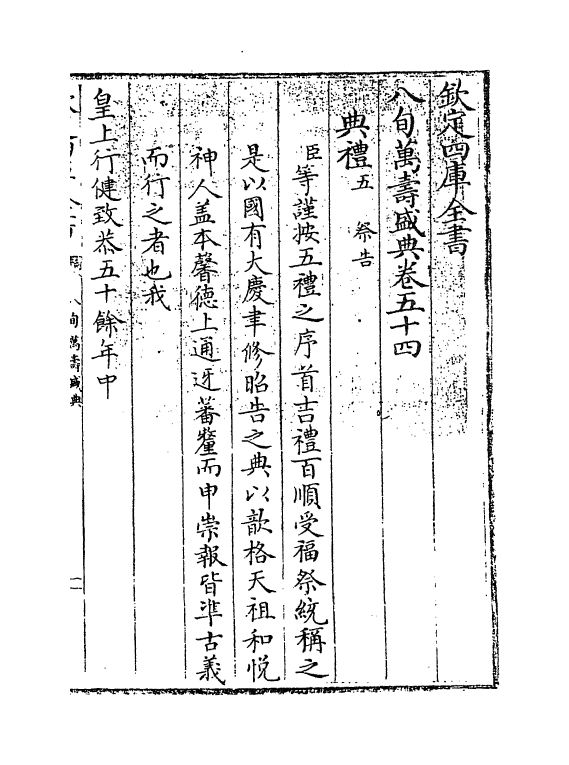 欽定四庫全書
八旬萬壽盛典卷五十四
典禮五 祭告
臣等謹按五禮之序首吉禮百順受福祭統稱之
是以國有大慶聿修昭告之典以歆格天祖和悅
神人蓋本馨德上通迓蕃釐而申崇報皆準古義
而行之者也我
皇上行健致恭五十餘年中
八旬萬壽盛典